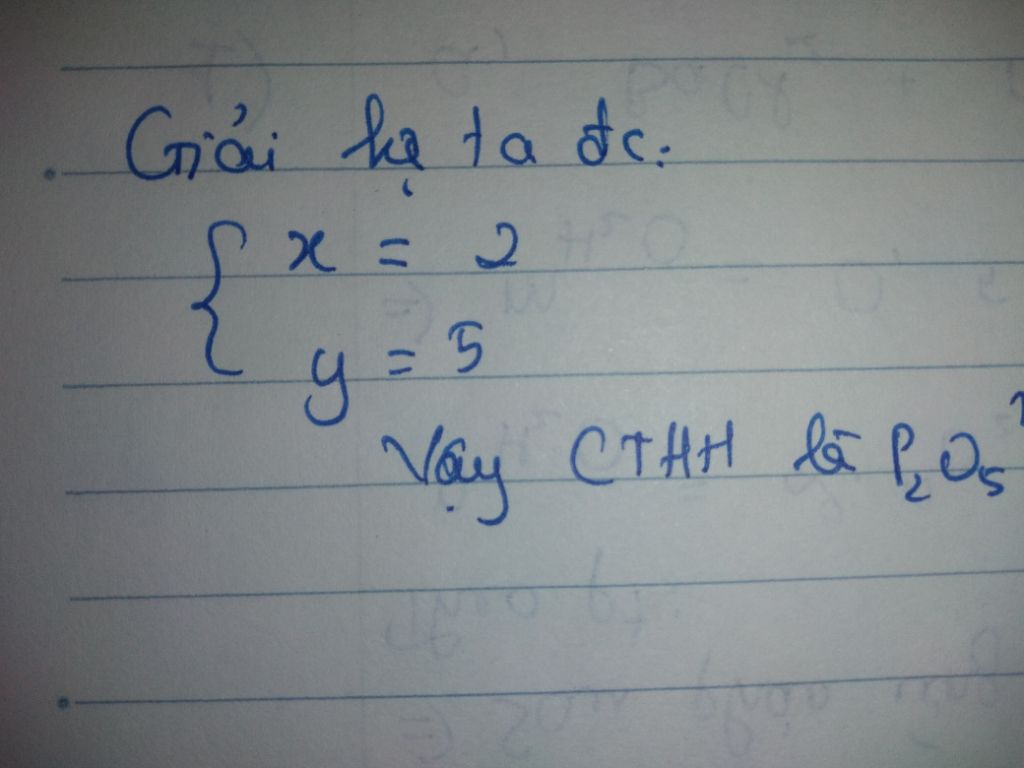 Giải hệ ta đc:
x = 2
y = 5
Vậy CTHH là P₂O₅